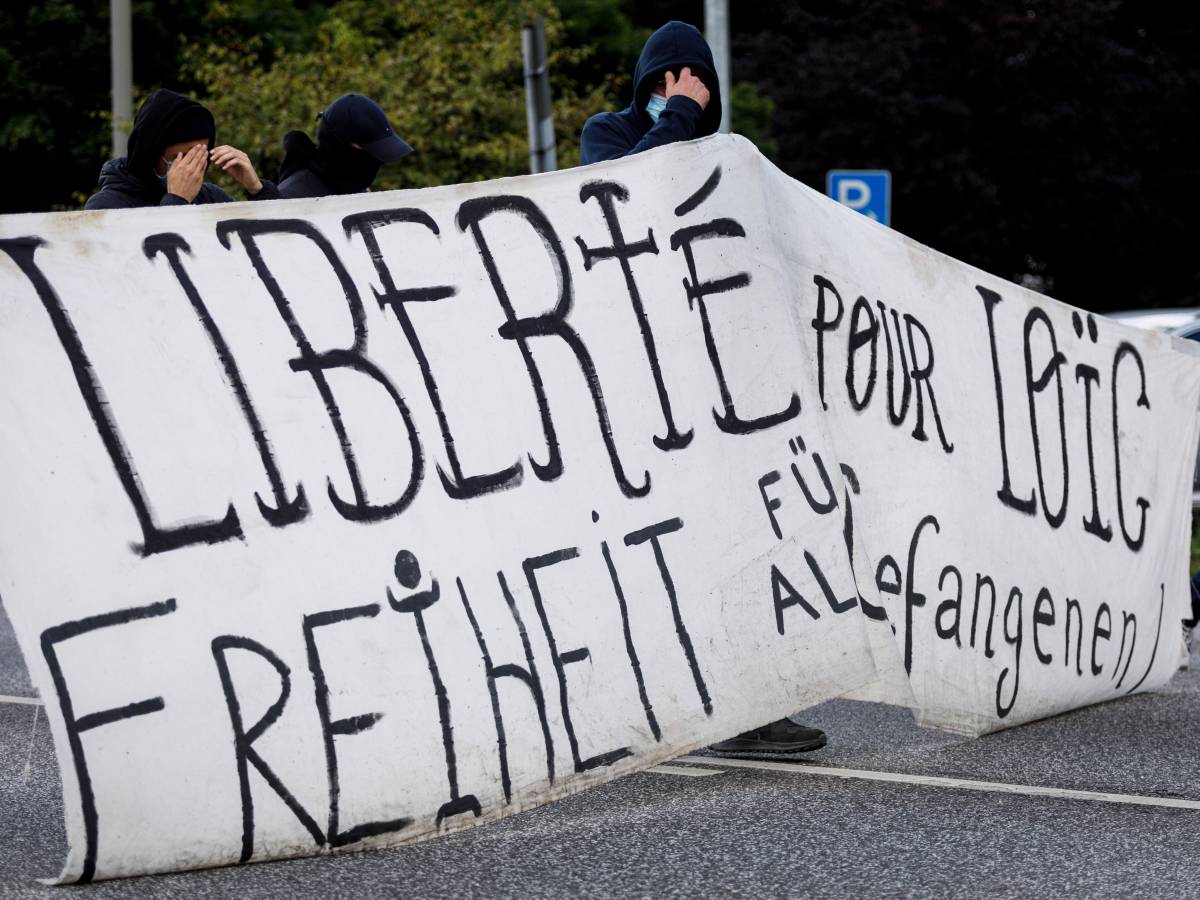 LIBERTÉ POUR LOÏC
FREIHEIT FÜR
ALLE fangenen!
P